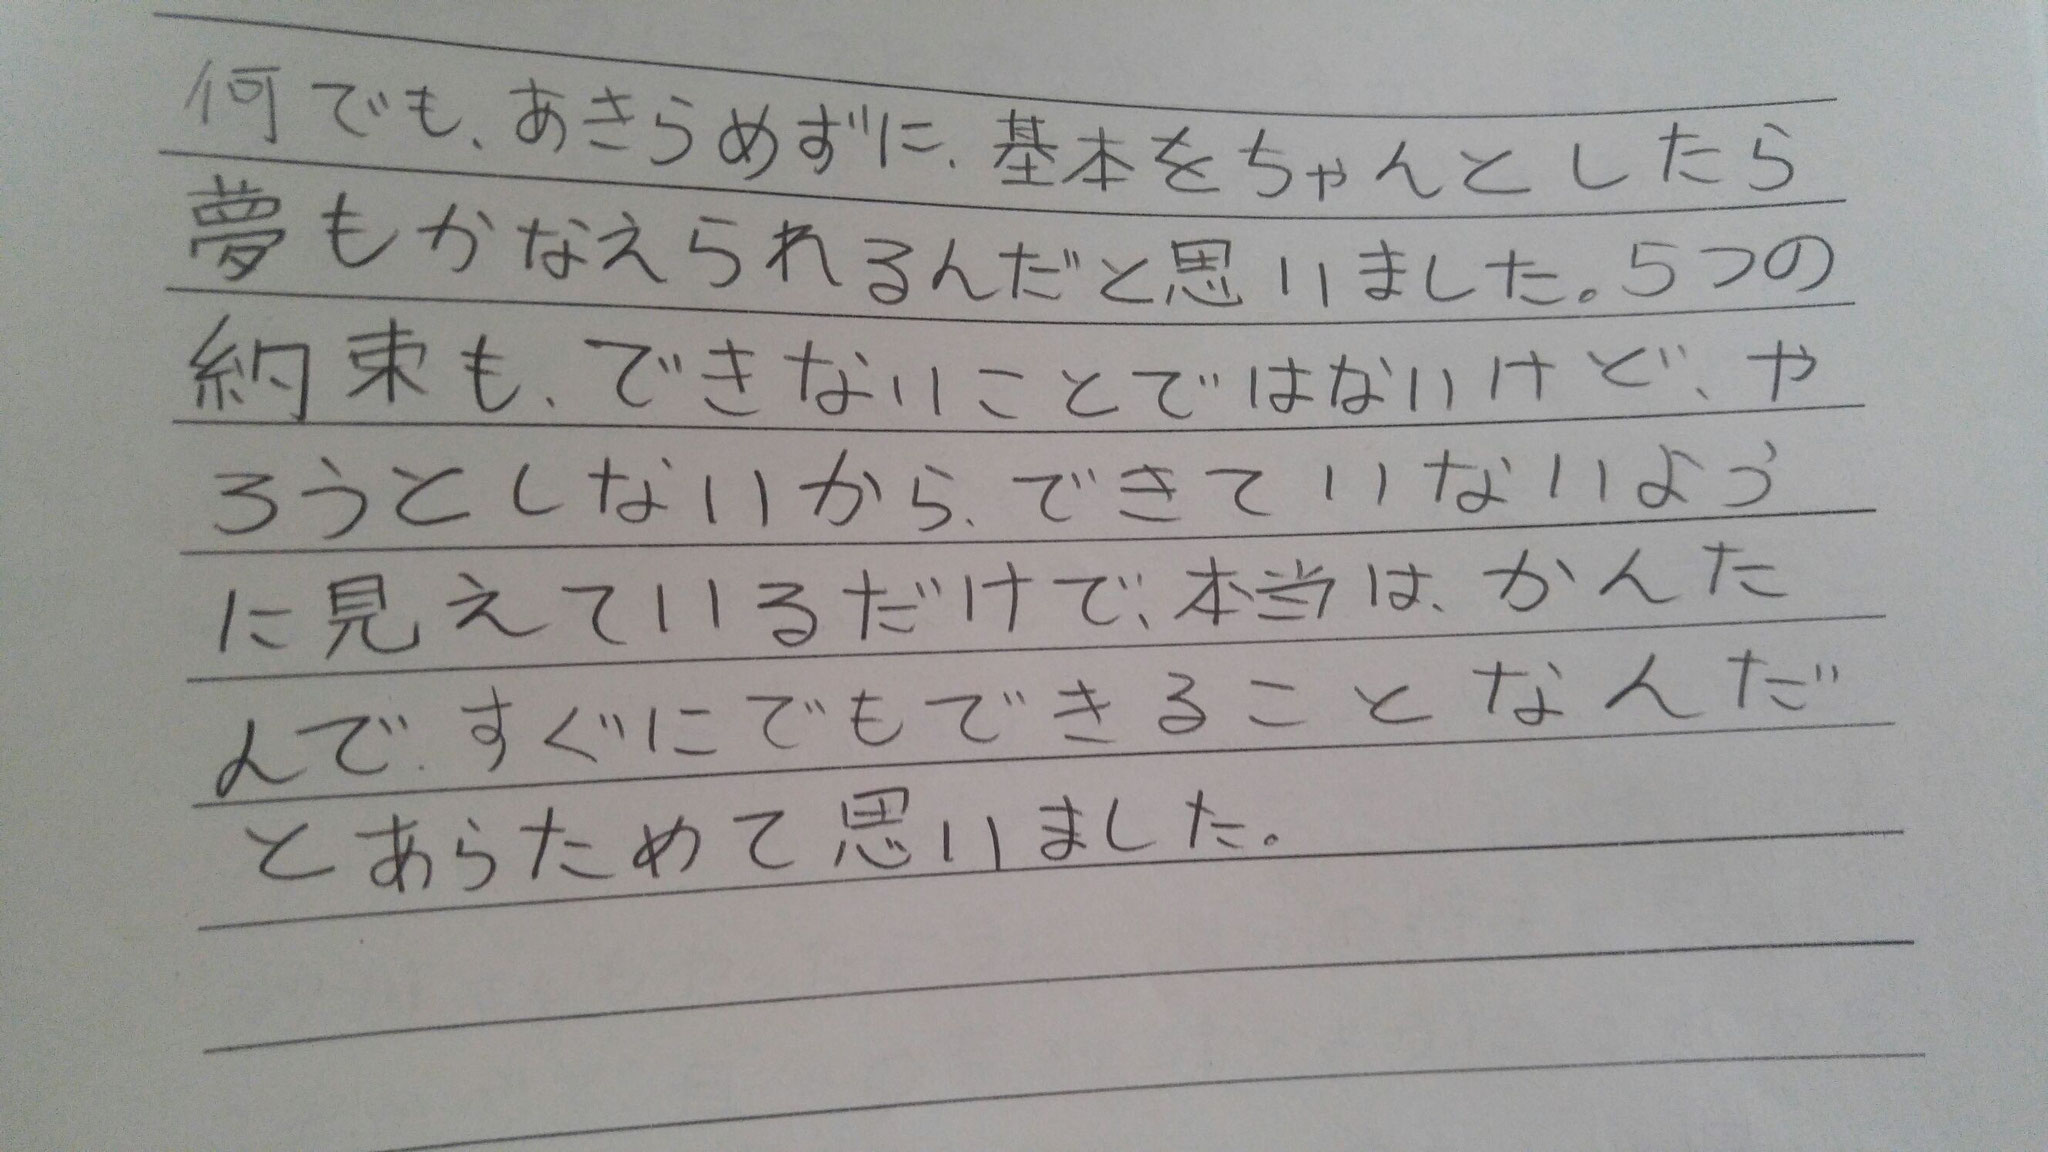 何でも、あきらめずに、基本をちゃんとしたら
夢もかなえられるんだと思いました。5つの
約束も、できないことではないけど、や
ろうとしないから、できていないよう
に見えているだけで、本当は、かんた
んで、すぐにでもできることなんだ
とあらためて思いました。